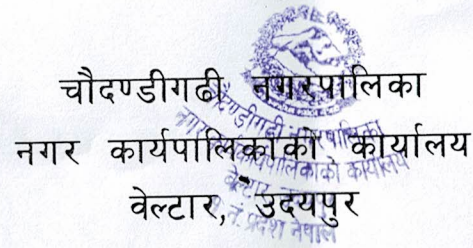 चौदण्डीगढी नगरपालिका
नगर कार्यपालिकाको कार्यालय
वेल्टार, उदयपुर